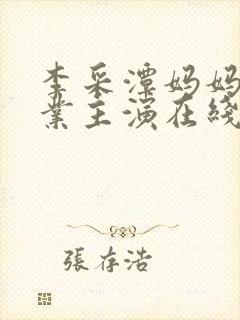 李采潭妈妈
業主演在綫
張存浩